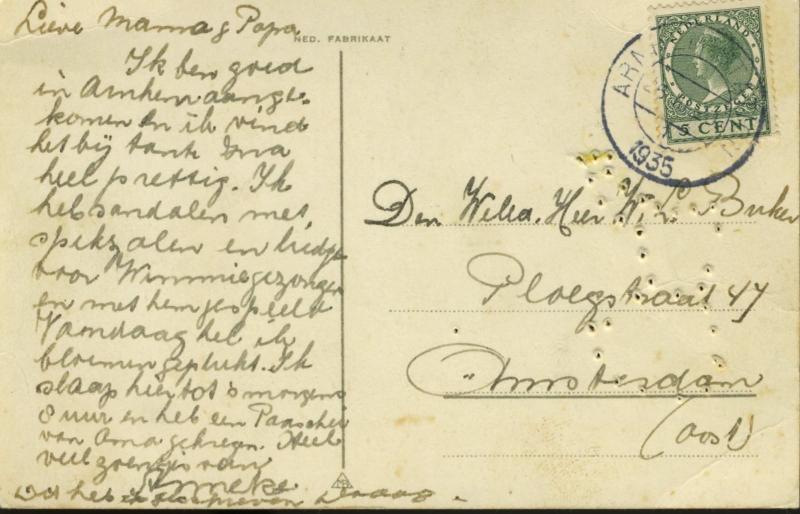 Lieve Mama & Papa
Ik ben goed
in Arnhem aange-
komen en ik vind
het bij tante Ina
heel prettig. Ik
heb sandalen met
en liedjes
voor Wimmie gezongen
en met hem gespeeld
Vandaag heb ik
bloemen geplukt. Ik
slaap hier tot 's morgens
8 uur en heb een Paaschei
van Oma gekregen. Heel
veel zoentjes van
Anneke
Dit heb ik geschreven
NED. FABRIKAAT
NEDERLAND
POSTZEGEL
5 CENT
1935
Den Weled. Heer W. Buker
Ploegstraat 47
Amsterdam
(oost)